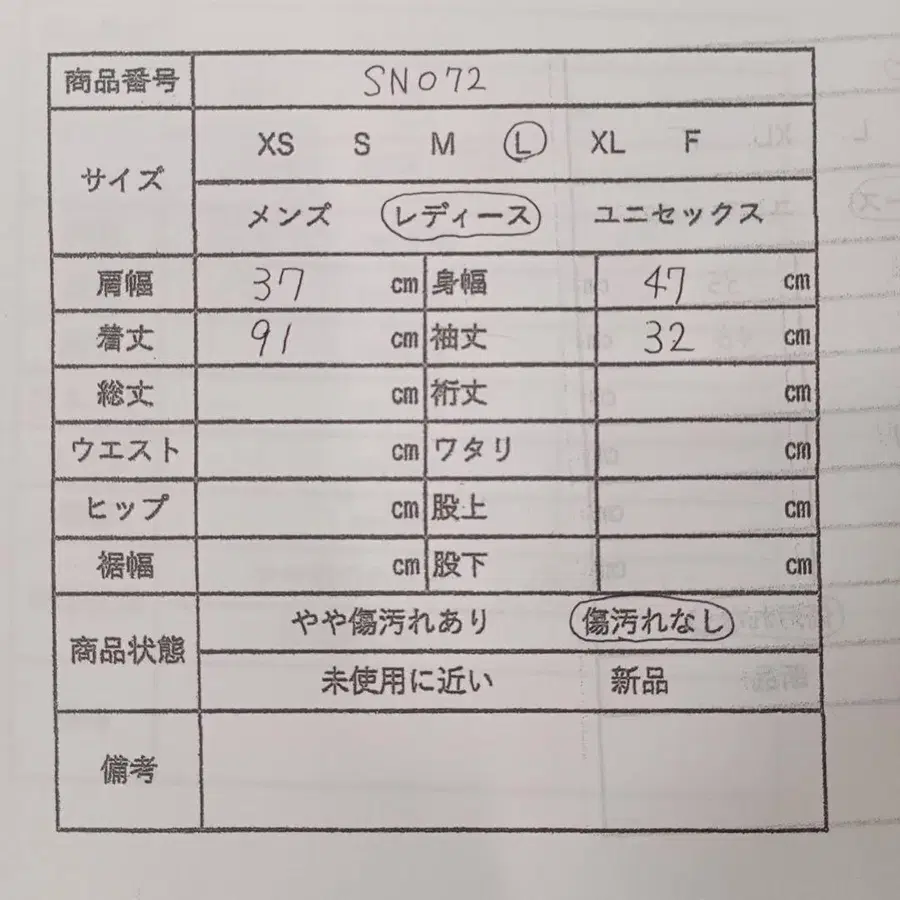 商品番号 SN072
サイズ XS S M L XL F
メンズ レディース ユニセックス
肩幅 37 cm 身幅 47 cm
着丈 91 cm 袖丈 32 cm
総丈 cm 裄丈 cm
ウエスト cm ワタリ cm
ヒップ cm 股上 cm
裾幅 cm 股下 cm
商品状態 やや傷汚れあり 傷汚れなし
未使用に近い 新品
備考